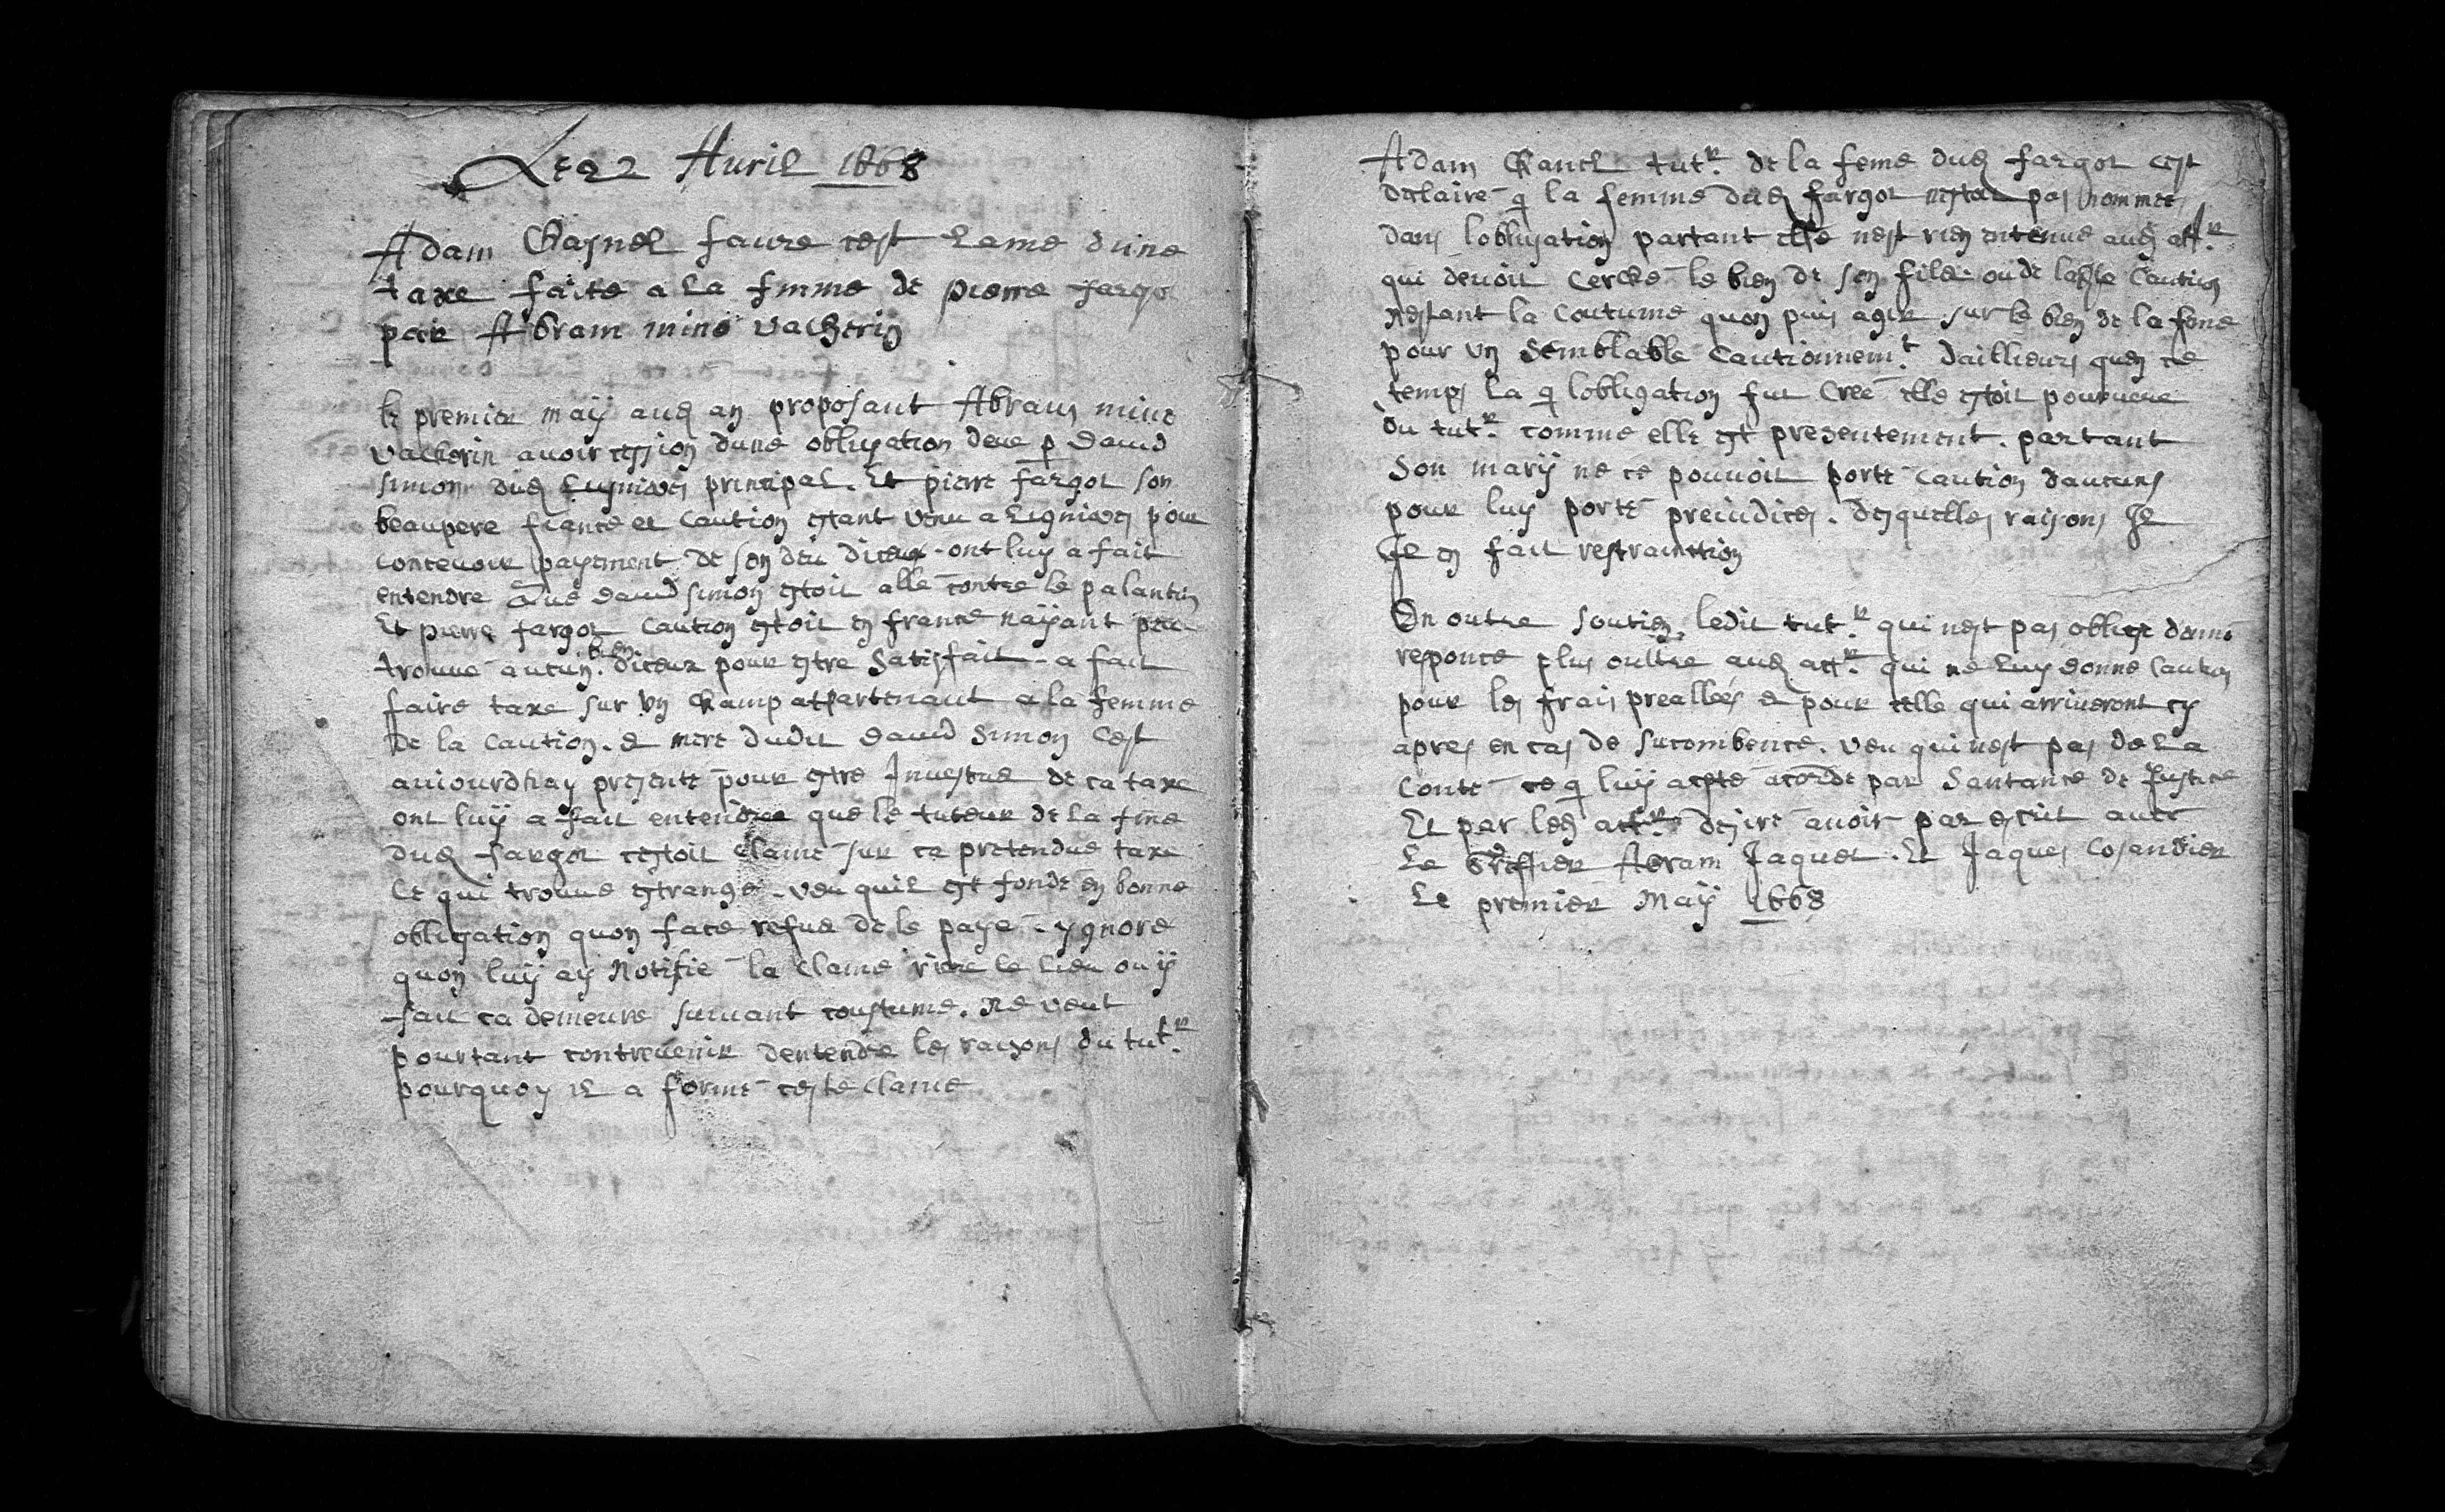 Le 22 Auril 1668
Adam Chasnel faure cest clame dune
taxe faite a la fmme de pierre fargo
par Abram mine vacherin
le premier maÿ aud an proposant Abram mine
vacherin auoir cession dune obligation deue p Dauid
simon dud Lignieres principal. Et pierre fargot son
beaupere fiance et caution estant venu a Lignieres pour
conceuoir payement de son deu diceux - ont luy a fait
entendre que dauid simon estoit allé contre le palantin
Et pierre fargot caution estoit en france nayant peu
trouue aucun bien diceux pour estre satisfait - a fait
faire taxe sur vn champ attartenant a la femme
de la caution. & mere dudit dauid simon cest
auiourdhuy presente pour estre Inuestue de ca taxe
ont luÿ a fait entendre que le tuteur de la fme
dud fargot cestoit clamé sur ca pretendue taxe
Ce qui trouue estrange - veu quil est fonde en bonne
obligation quon face refus de le paye - ygnore
quon luÿ aÿ Notifie la clame riere le Lieu ou ÿ
fait ca demeure suiuant coustume. Ne veut
pourtant contreuenir dentendre les raisons du tutr
pourquoy il a forme ceste clame
Adam Chanel tutr de la feme dud fargot cest
declaire q la femme dud fargot nestoit pas nommee
dans lobligation partant elle nest rien entenue aud attr
qui deuoit cercke le bien de son filz ou de la caution
Nestant la coutume quon puis agir sur le bien de la fme
pour vn semblable cautionnemt dailleurs quen ce
temps la q lobligation fut creé elle estoit pourueue
du tutr comme elle est presentement. partant
son marÿ ne ce pouuoit porte caution daucuns
pour luy porté preiudices. desquelles raisons Il
Il en fait restrainttion
En outre soutien ledit tutr qui nest pas oblige donné
responce plus oultre aud attr qui ne luy donne caution
pour les frais preallées & pour celle qui arriueront cy
apres en cas de sucombence. veu qui nest pas de La
Conté ce q luÿ acpté acordé par Santance de Justice
Et par led attr desire auoir par escrit auec
Le Greffier Abram Jaquet. Et Jaques Cosandier
Le premier Maÿ 1668